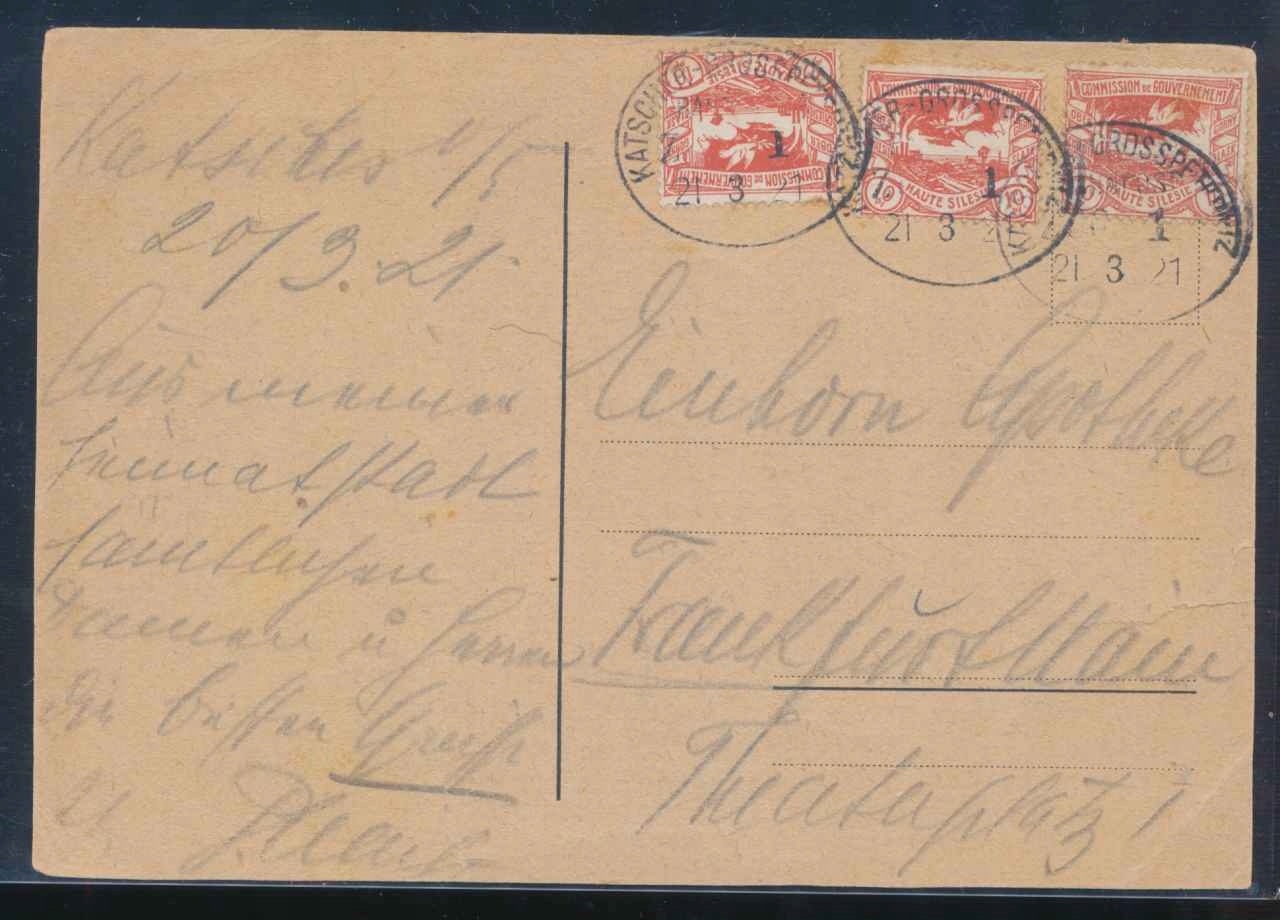 Katscher O/S
20/3.21.
Aus meiner
Heimatstadt
sämtlichen
Damen u Herren
die besten Grüße
Einhorn Apotheke
Frankfurt Main
Theaterplatz 1
COMMISSION DE GOUVERNEMENT
HAUTE SILESIE
10 10
COMMISSION DE GOUVERNEMENT
HAUTE SILESIE
10 10
COMMISSION DE GOUVERNEMENT
HAUTE SILESIE
KATSCHER-GROSSPETERWITZ
1
21 3 21
GROSSPETERWITZ
1
21 3 21
GROSSPETERWITZ
1
21 3 21